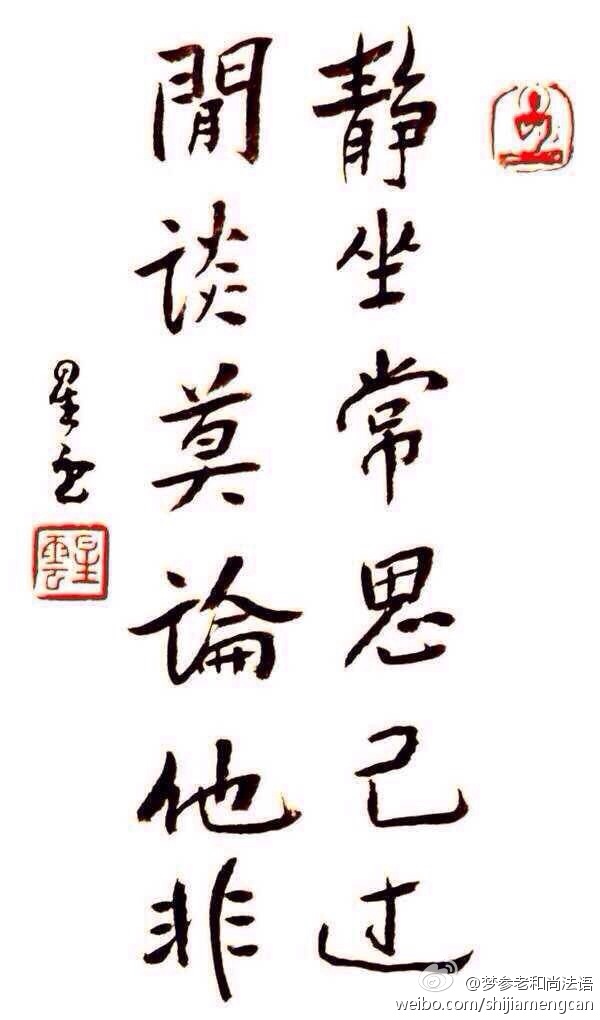 静坐常思己过
閒谈莫論他非
星云
星雲
@梦参老和尚法语
weibo.com/shijiamengcan